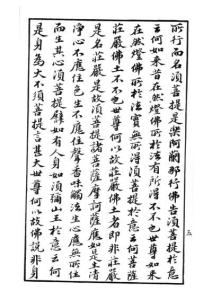 所行而名須菩提是樂阿蘭那行佛告須菩提於意
云何如來昔在然燈佛所於法有所得不不也世尊如來
在然燈佛所於法實無所得須菩提於意云何菩薩
莊嚴佛土不不也世尊何以故莊嚴佛土者即非莊嚴
是名莊嚴是故須菩提諸菩薩摩訶薩應如是生清
淨心不應住色生心不應住聲香味觸法生心應無所住
而生其心須菩提譬如有人身如須彌山王於意云何
是身為大不須菩提言甚大世尊何以故佛說非身
五